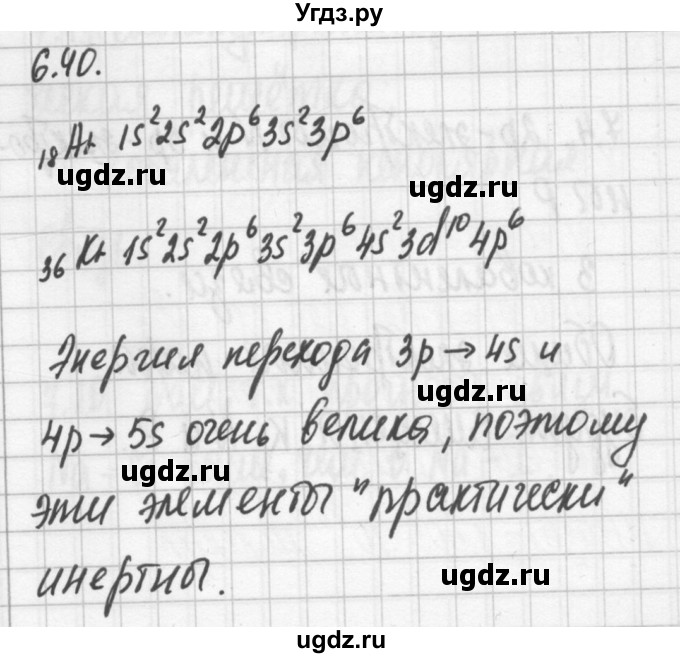 Угдз.ру
6.40.
₁₈Ar 1s²2s²2p⁶3s²3p⁶
ugdz.ru
ugdz.ru
₃₆Kr 1s²2s²2p⁶3s²3p⁶4s²3d¹⁰4p⁶
Энергия перехода 3p → 4s и
ugdz.ru
4p → 5s очень велика, поэтому
ugdz.ru
эти элементы "практически"
инертны.
ugdz.ru
ugdz.ru